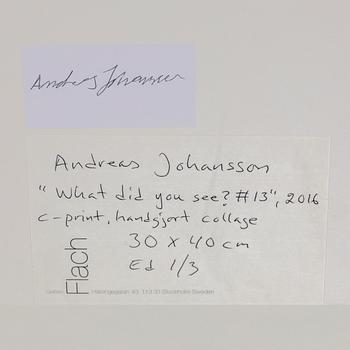 Andreas Johansson
Andreas Johansson
"What did you see? #13", 2016
c-print, handgjort collage
30 x 40 cm
Ed 1/3
Flach
Hälsingegatan 43 113 31 Stockholm Sweden